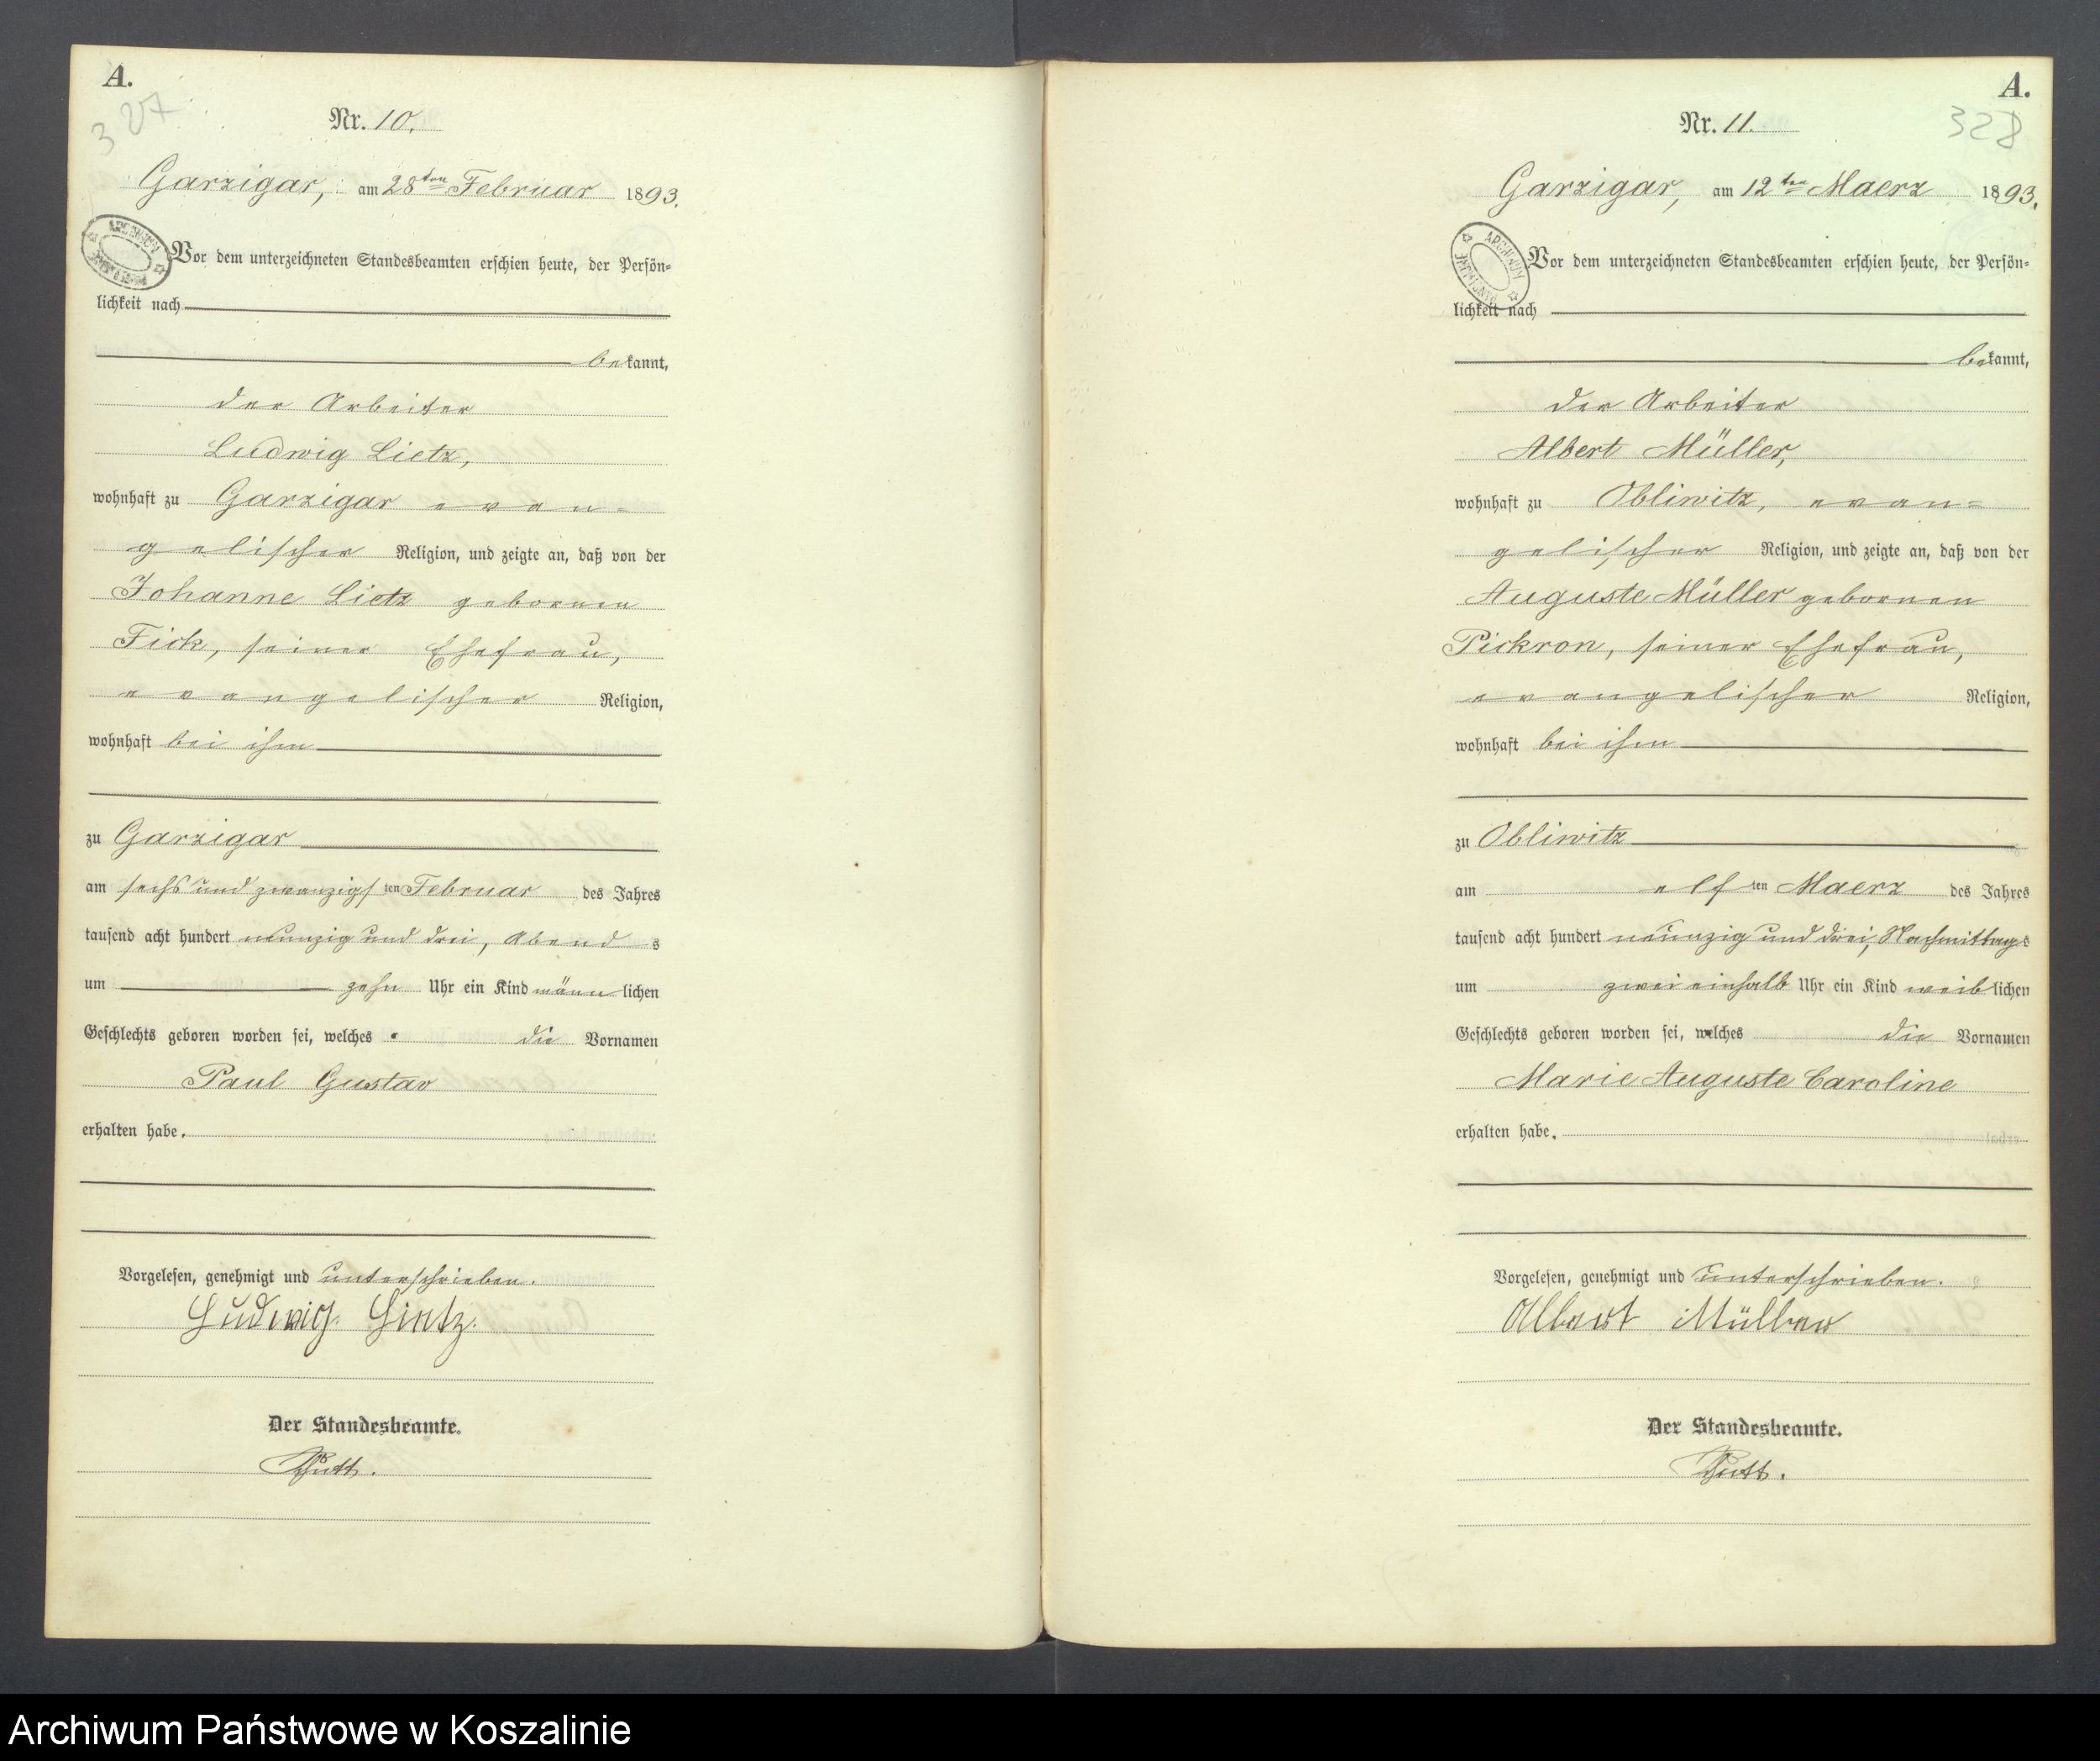 A.
327
Nr. 10.
Garzigar, am 28ten Februar 1893.
ARCHIWUM PAŃSTWOWE
Vor dem unterzeichneten Standesbeamten erschien heute, der Persön=
lichkeit nach
bekannt,
der Arbeiter
Ludwig Lietz,
wohnhaft zu Garzigar evan=
gelischer Religion, und zeigte an, daß von der
Johanne Lietz gebornen
Fick, seiner Ehefrau,
evangelischer Religion,
wohnhaft bei ihm
zu Garzigar
am sechs und zwanzigsten Februar des Jahres
tausend acht hundert neunzig und drei, Abends
um zehn Uhr ein Kind männlichen
Geschlechts geboren worden sei, welches die Vornamen
Paul Gustav
erhalten habe.
Vorgelesen, genehmigt und unterschrieben.
Ludwig Lietz.
Der Standesbeamte.
A.
328
Nr. 11.
Garzigar, am 12ten Maerz 1893.
ARCHIWUM PAŃSTWOWE
Vor dem unterzeichneten Standesbeamten erschien heute, der Persön=
lichkeit nach
bekannt,
der Arbeiter
Albert Müller,
wohnhaft zu Obliwitz, evan=
gelischer Religion, und zeigte an, daß von der
Auguste Müller gebornen
Pickron, seiner Ehefrau,
evangelischer Religion,
wohnhaft bei ihm
zu Obliwitz
am elften Maerz des Jahres
tausend acht hundert neunzig und drei, Nachmittags
um zwei einhalb Uhr ein Kind weiblichen
Geschlechts geboren worden sei, welches die Vornamen
Marie Auguste Caroline
erhalten habe.
Vorgelesen, genehmigt und unterschrieben.
Albert Müller
Der Standesbeamte.
Archiwum Państwowe w Koszalinie